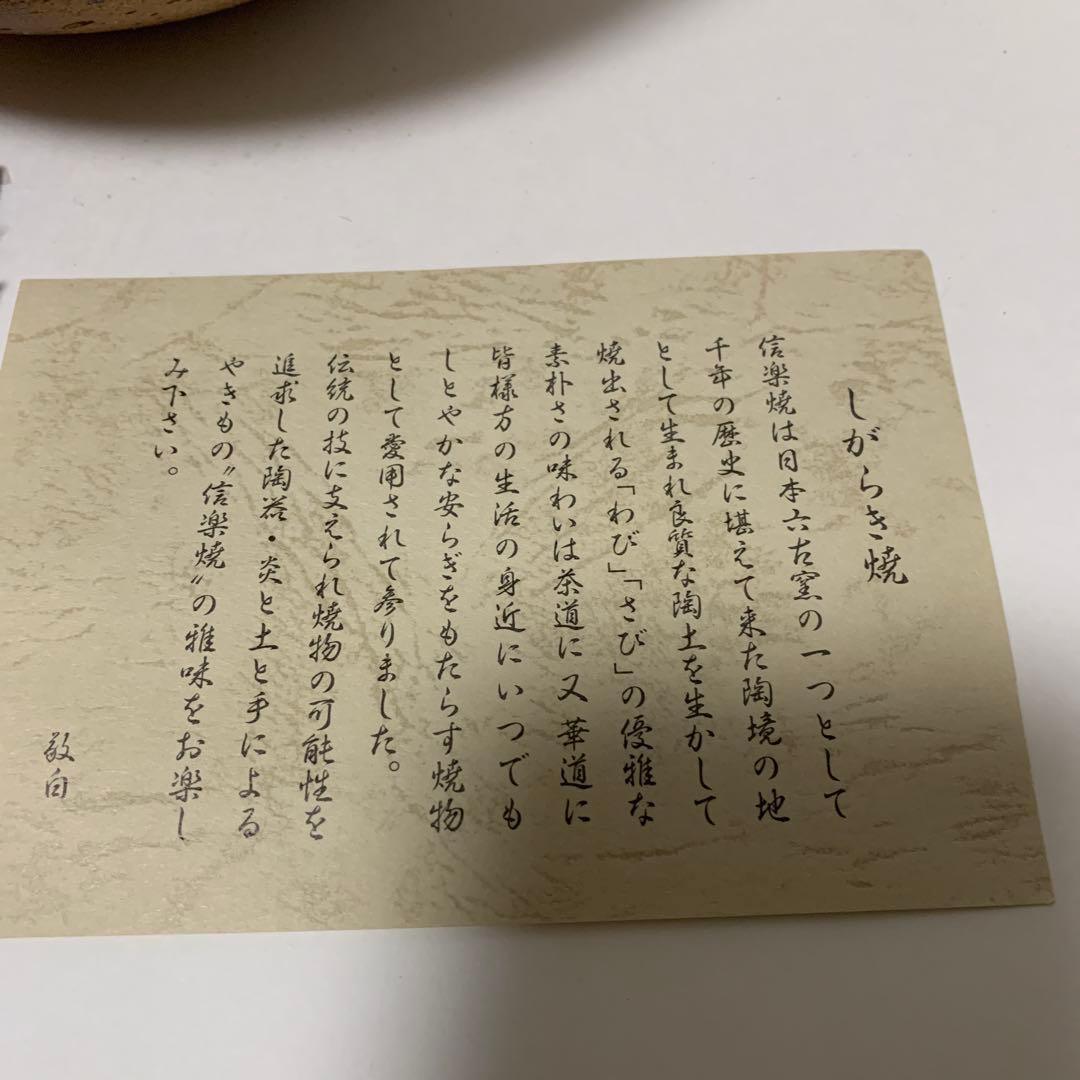 しがらき焼
信楽焼は日本六古窯の一つとして
千年の歴史に堪えて来た陶境の地
として生まれ良質な陶土を生かして
焼出される「わび」「さび」の優雅な
素朴さの味わいは茶道に又華道に
皆様方の生活の身近にいつでも
しとやかな安らぎをもたらす焼物
として愛用されて参りました。
伝統の技に支えられ焼物の可能性を
追求した陶器・炎と土と手による
やきもの〝信楽焼〟の雅味をお楽し
み下さい。
敬白